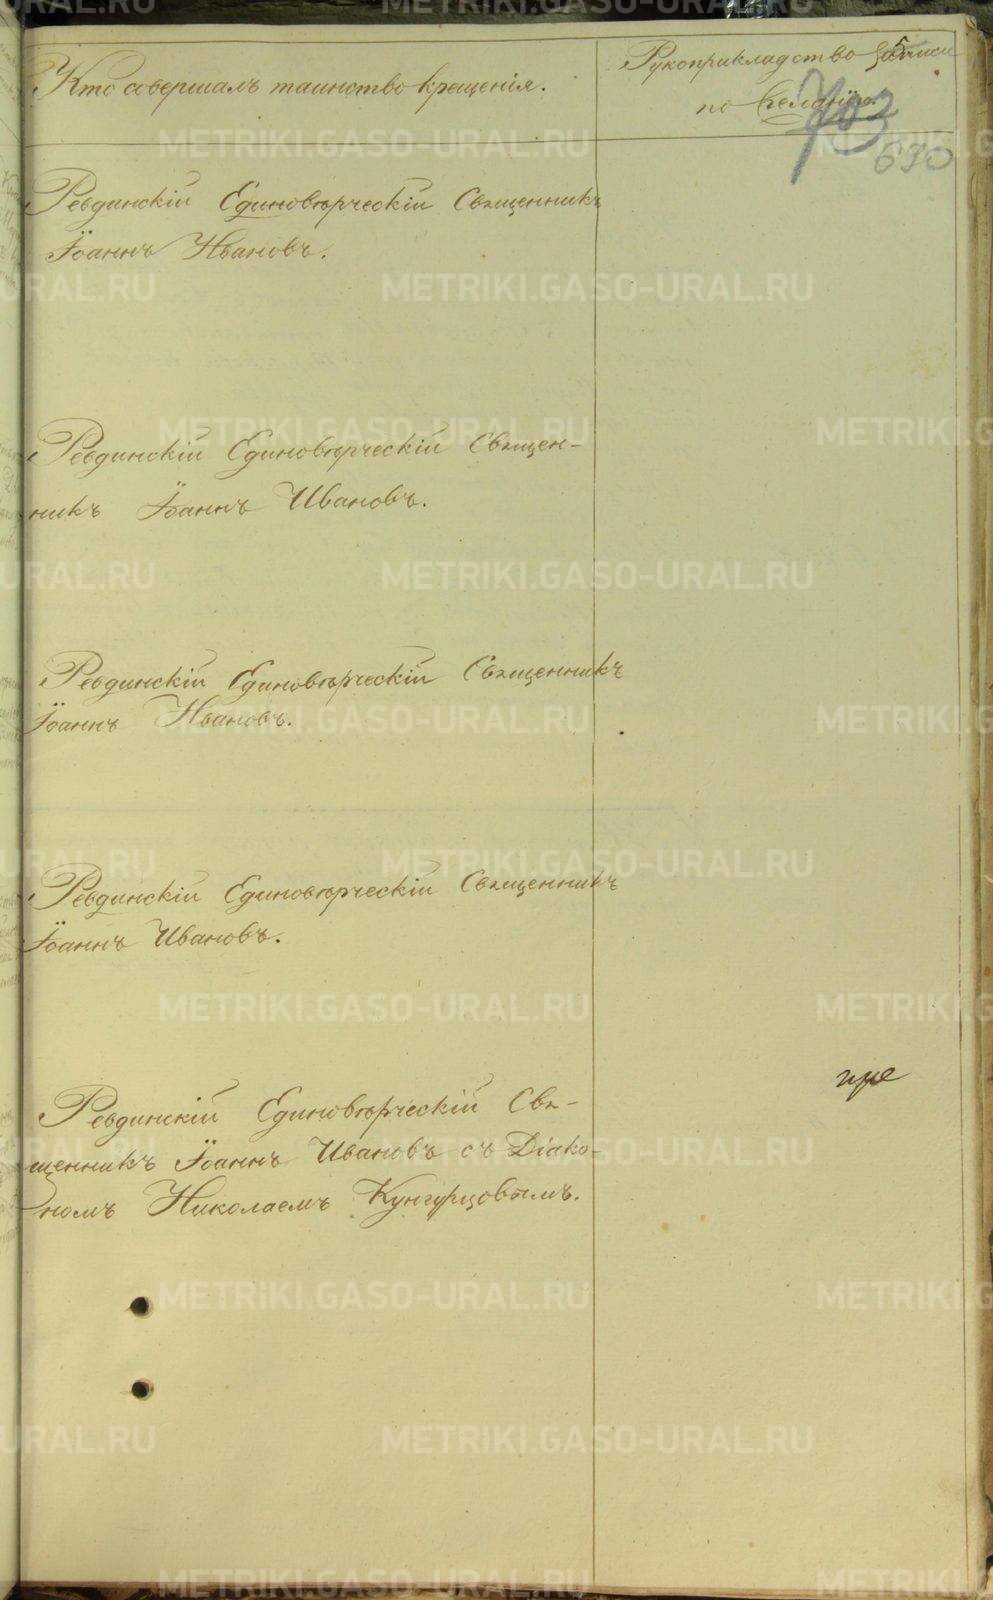 Кто совершалъ таинство крещенія.
Рукоприкладство записи
по желанію.
5
703
690
Ревдинскій Единовѣрческій Священникъ
Іоаннъ Ивановъ.
Ревдинскій Единовѣрческій Священ-
никъ Іоаннъ Ивановъ.
Ревдинскій Единовѣрческій Священникъ
Іоаннъ Ивановъ.
Ревдинскій Единовѣрческій Священникъ
Іоаннъ Ивановъ.
Ревдинскій Единовѣрческій Свя-
щенникъ Іоаннъ Ивановъ съ Діако-
номъ Николаемъ Кунгурцовымъ.
METRIKI.GASO-URAL.RU